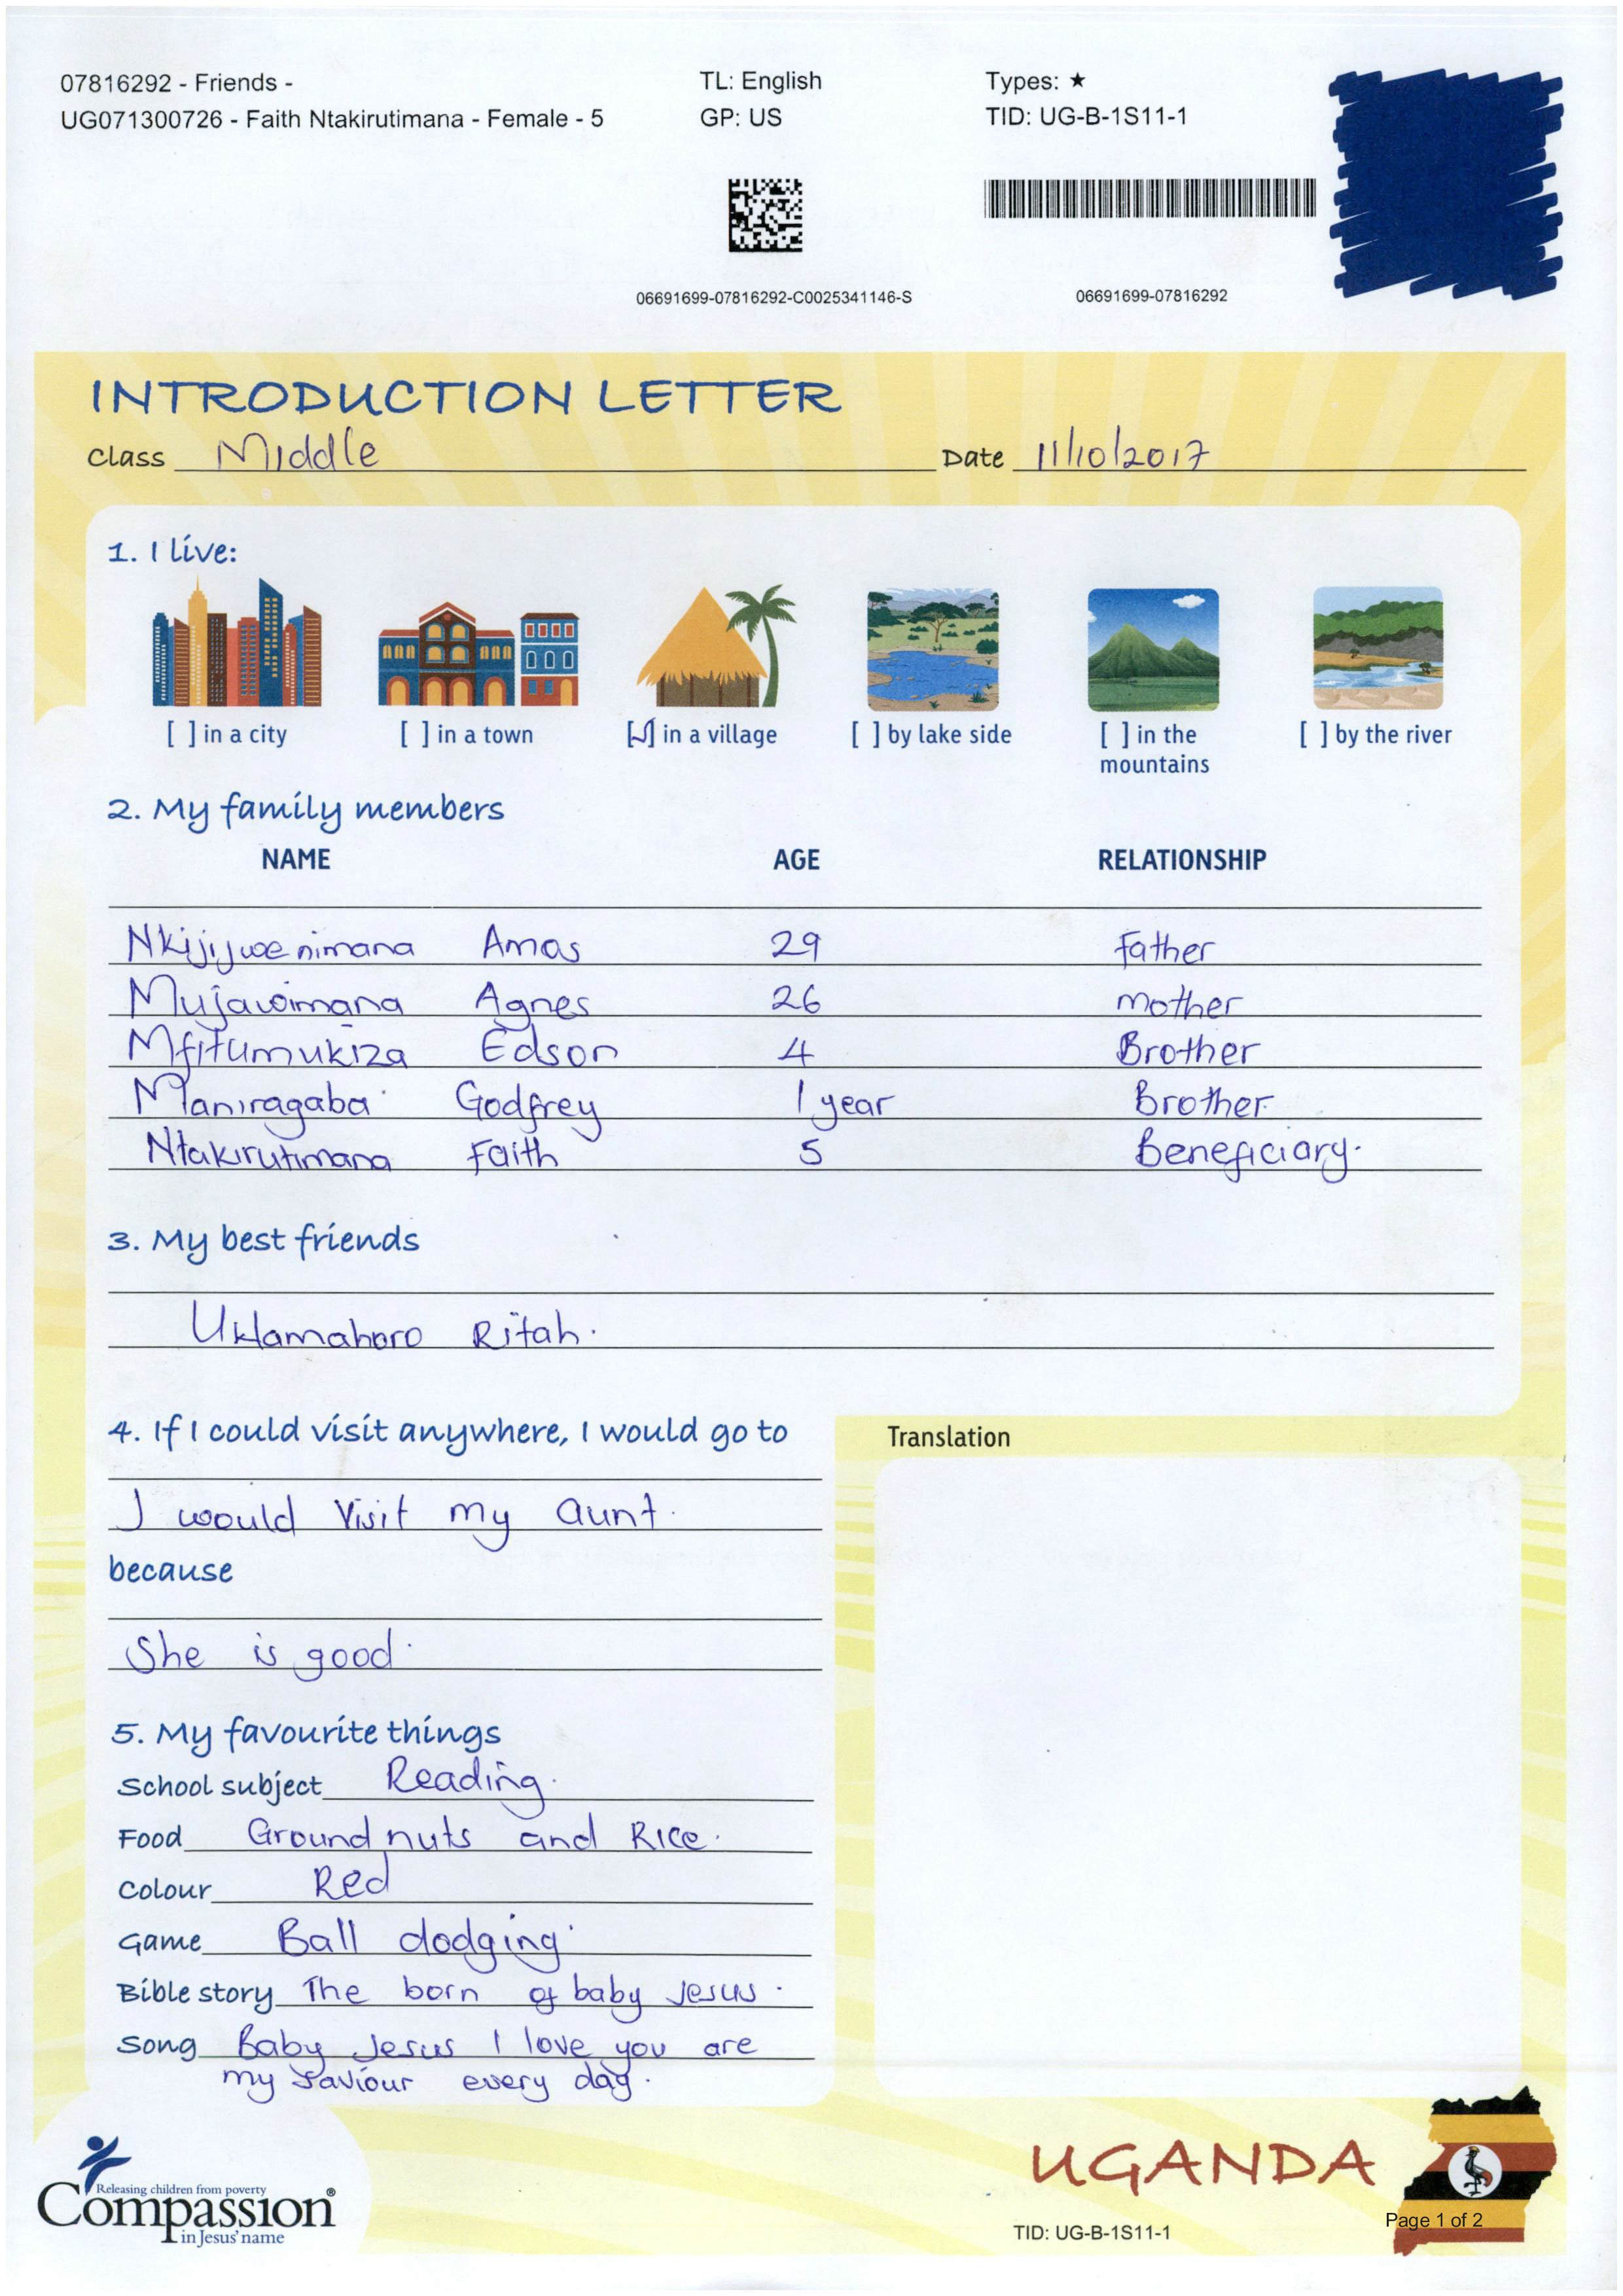 07816292 - Friends -
UG071300726 - Faith Ntakirutimana - Female - 5
TL: English
GP: US
Types: ★
TID: UG-B-1S11-1
06691699-07816292-C0025341146-S
06691699-07816292
INTRODUCTION LETTER
Class Middle Date 11/10/2017
1. I live:
[ ] in a city [ ] in a town [✓] in a village [ ] by lake side [ ] in the mountains [ ] by the river
2. My family members
NAME AGE RELATIONSHIP
Nkijijwenimana Amos 29 Father
Mujawimana Agnes 26 mother
Mfitumukiza Edson 4 Brother
Maniragaba Godfrey 1 year Brother
Ntakirutimana Faith 5 Beneficiary.
3. My best friends
Ritah.
4. If I could visit anywhere, I would go to
I would Visit my aunt.
because
She is good.
5. My favourite things
School subject Reading.
Food Ground nuts and Rice.
Colour Red
Game Ball dodging
Bible story The born of baby Jesus.
Song Baby Jesus I love you are
my saviour every day.
Translation
Releasing children from poverty
Compassion®
in Jesus' name
UGANDA
TID: UG-B-1S11-1
Page 1 of 2